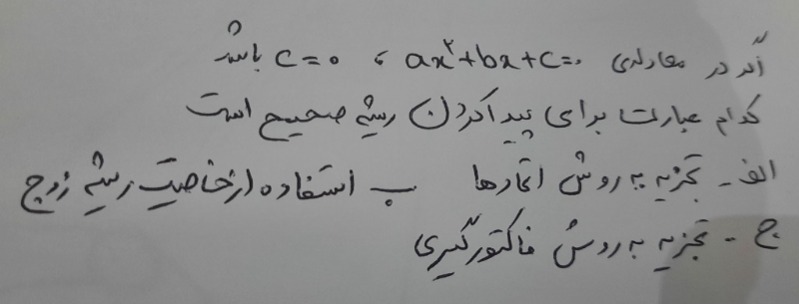 اگر در معادلهی ax²+bx+c=۰ ، c=۰ باشد
کدام عبارت برای پیدا کردن ریشه صحیح است
الف - تجزیه به روش اتحادها ب استفاده از خاصیت ریشه زوج
ج - تجزیه به روش فاکتورگیری